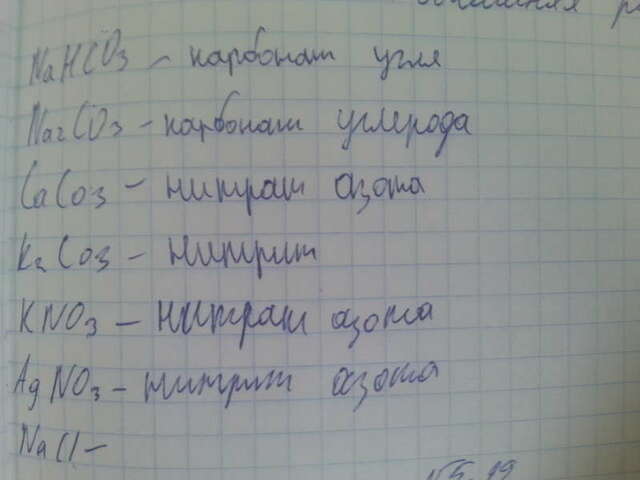 домашняя
NaHCO3 – карбонат угля
Na2CO3 – карбонат углерода
CaCo3 – нитрат азота
K2Co3 – нитрит
KNO3 – нитрат азота
AgNO3 – нитрит азота
NaCl –